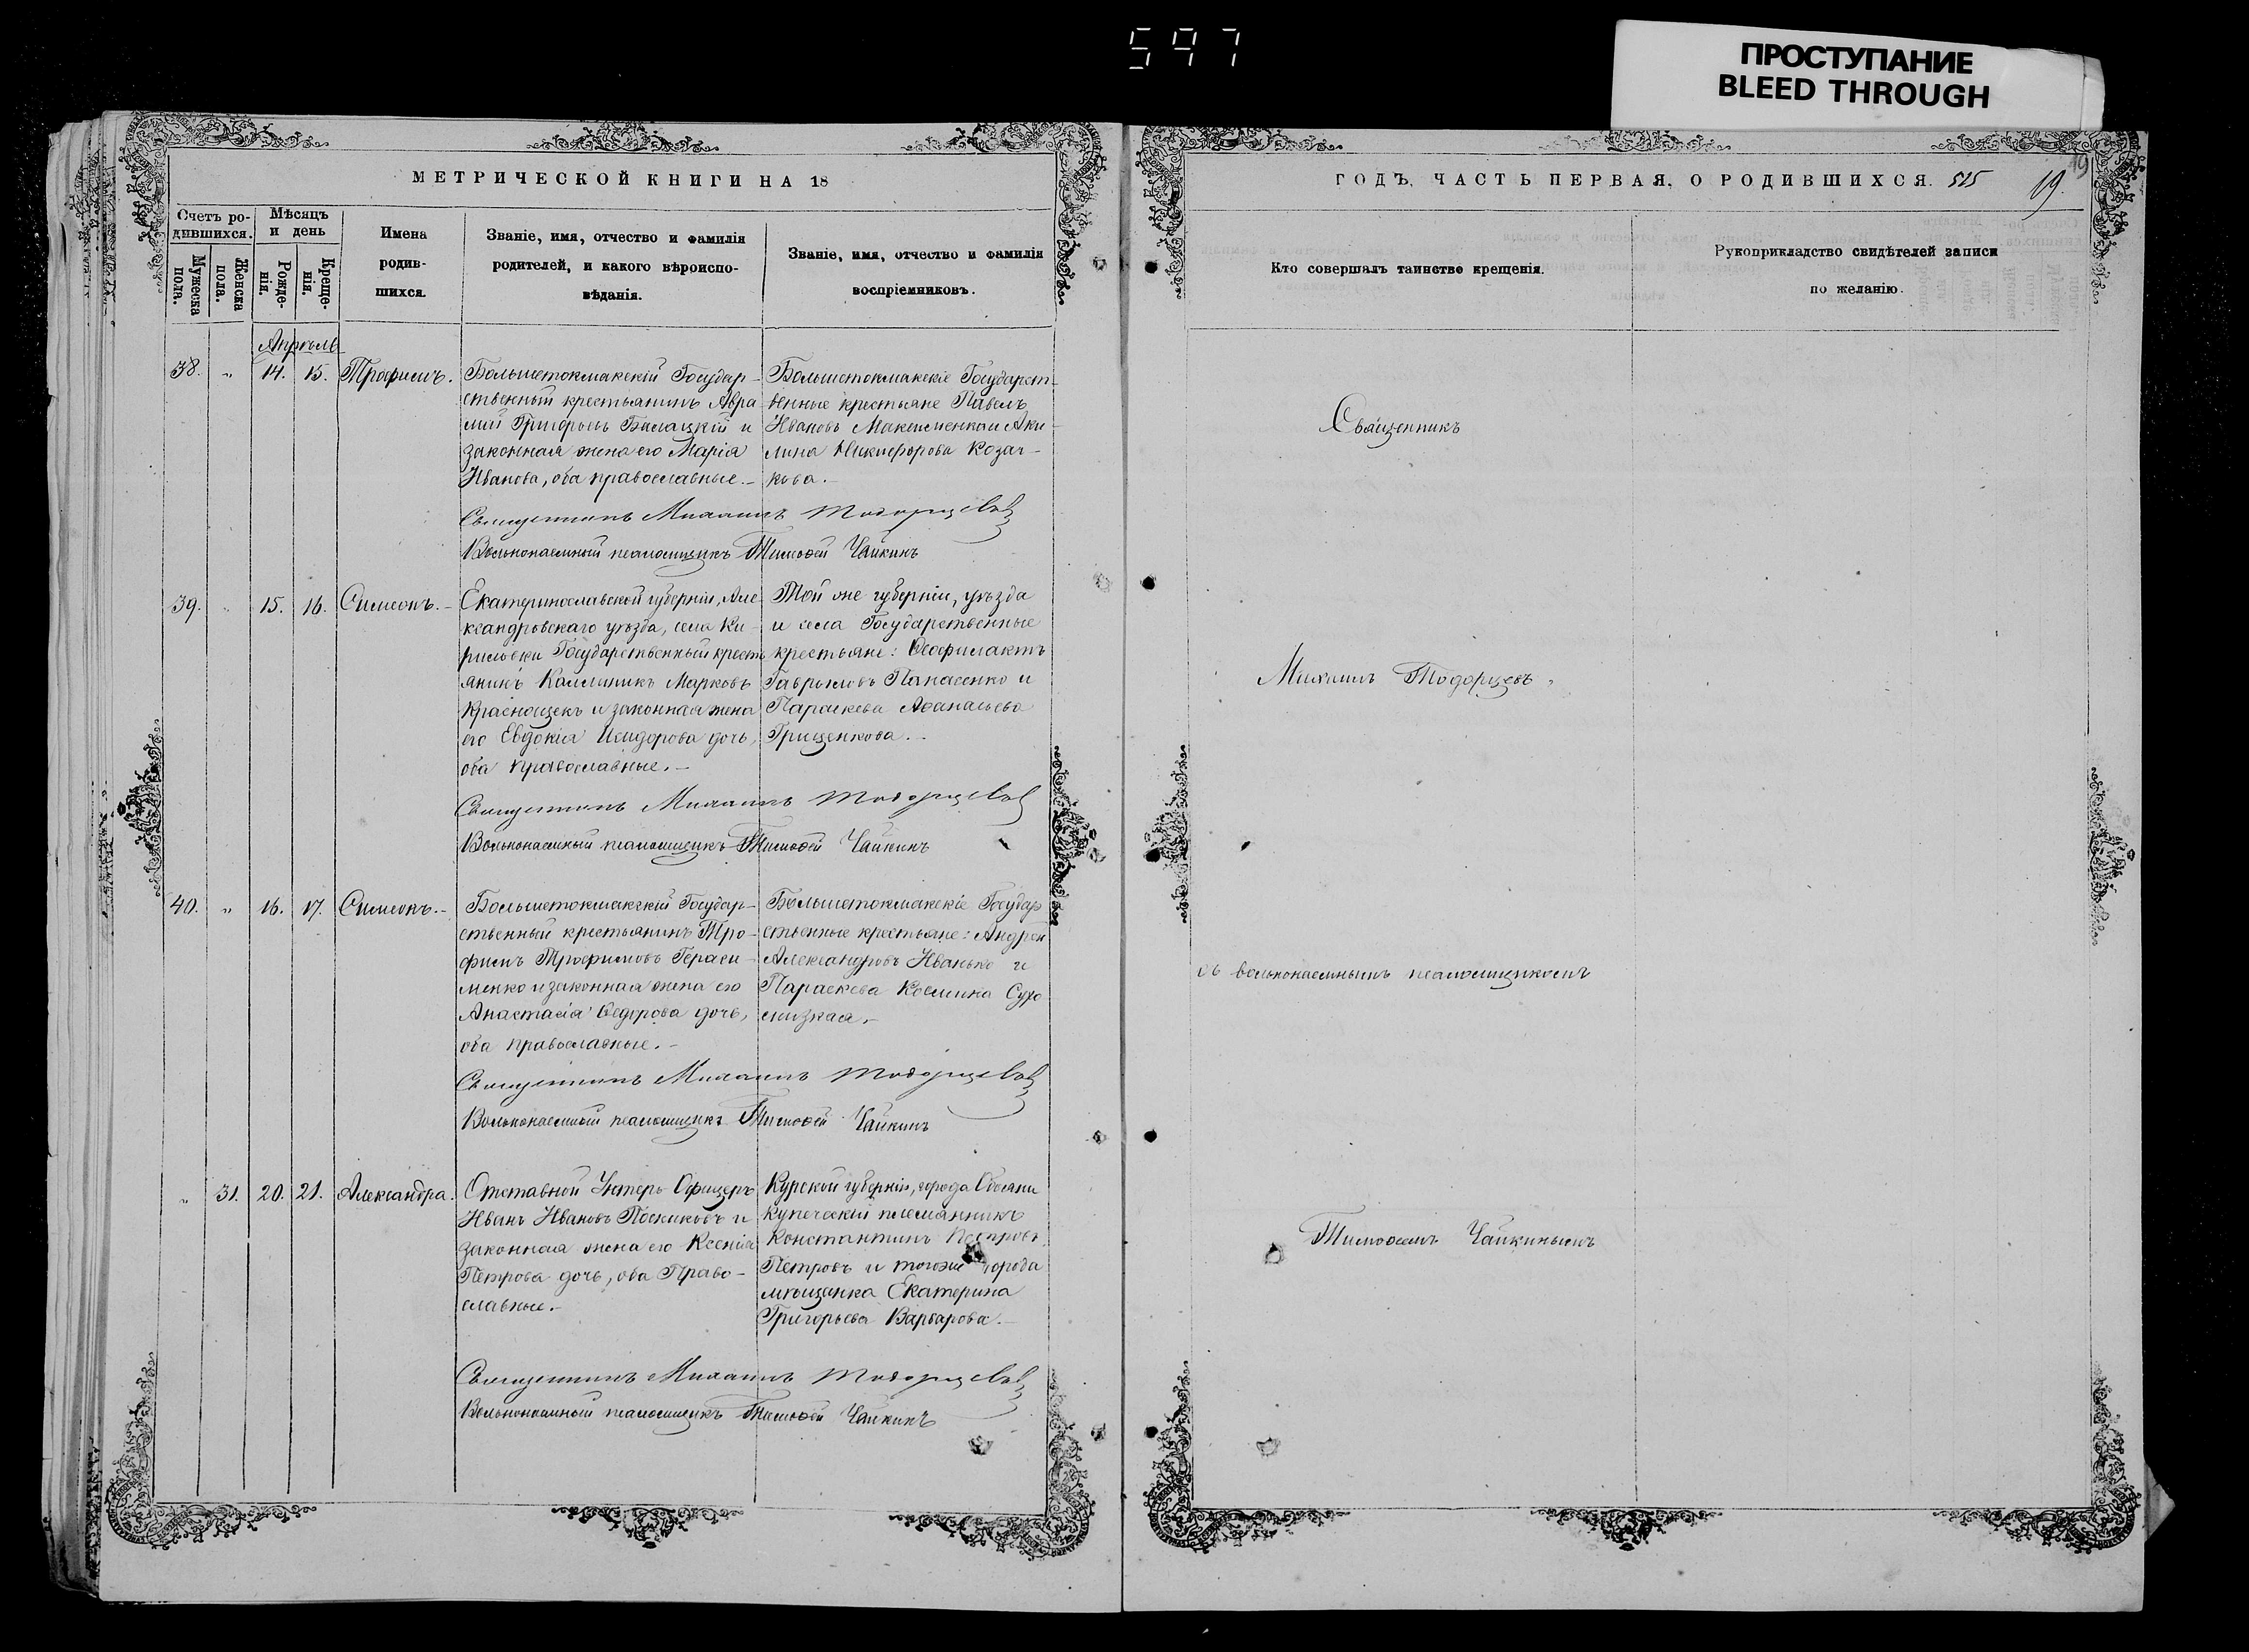 597
ПРОСТУПАНИЕ
BLEED THROUGH
МЕТРИЧЕСКОЙ КНИГИ НА 18
Счетъ ро-
дившихся.
Мужеска пола.
Женска пола.
Мѣсяцъ
и день
Рожде-
нія.
Креще-
нія.
Имена
родив-
шихся.
Званіе, имя, отчество и фамилія
родителей, и какого вѣроиспо-
вѣданія.
Званіе, имя, отчество и фамилія
воспріемниковъ.
Апрѣль
38. „ 14. 15. Трофимъ.
Большетокмакскій Государ-
ственный крестьянинъ Авра
мій Григорьевъ Билацкій и
законная жена его Марія
Иванова, оба православные.-
Большетокмакскіе Государст-
венные крестьяне Павелъ
Ивановъ Максименко и Аки-
лина Никифорова Козач-
кова.-
Священникъ Михаилъ Тодорцевъ
Вольнонаемный псаломщикъ Тимоѳей Чайкинъ
39. „ 15. 16. Симеонъ.-
Екатеринославской губерніи, Але
ксандровскаго уѣзда, села Ки-
риловки Государственный кресть
янинъ Каллиникъ Марковъ
Краснощекъ и законная жена
его Евдокія Исидорова дочь,
оба православные.-
Той же губерніи, уѣзда
и села Государственные
крестьяне: Ѳеофилактъ
Гавриловъ Панасенко и
Параскева Аѳанасьева
Грищенкова.-
Священникъ Михаилъ Тодорцевъ
Вольнонаемный псаломщикъ Тимоѳей Чайкинъ
40. „ 16. 17. Симеонъ.-
Большетокмакскій Государ-
ственный крестьянинъ Тро-
фимъ Трофимовъ Гераси-
менко и законная жена его
Анастасія Ѳедорова дочь,
оба православные.-
Большетокмакскіе Государ
ственные крестьяне: Андрей
Александровъ Иванько и
Параскева Космина Сухо
слизкая.-
Священникъ Михаилъ Тодорцевъ
Вольнонаемный псаломщикъ Тимоѳей Чайкинъ
„ 31. 20. 21. Александра.
Отставной Унтеръ Офицеръ
Иванъ Ивановъ Посниковъ и
законная жена его Ксенія
Петрова дочь, оба Право-
славные.-
Курской губерніи, города Обояни
купеческій племянникъ
Константинъ
Петровъ и тогоже города
мѣщанка Екатерина
Григорьева Варварова.-
Священникъ Михаилъ Тодорцевъ
Вольнонаемный псаломщикъ Тимоѳей Чайкинъ
ГОДЪ, ЧАСТЬ ПЕРВАЯ, О РОДИВШИХСЯ. 515
19.
19
Кто совершалъ таинство крещенія.
Рукоприкладство свидѣтелей записи
по желанію.
Священникъ
Михаилъ Тодорцевъ
съ вольнонаемнымъ псаломщикомъ
Тимоѳеемъ Чайкинымъ